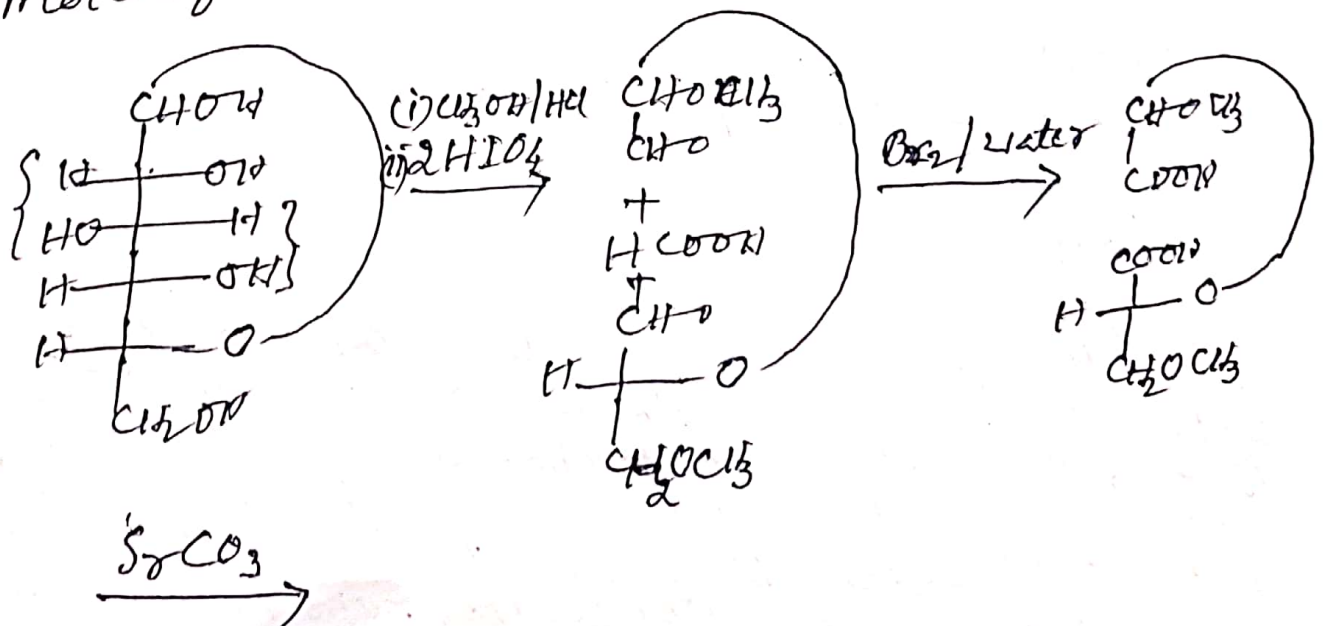 CHOH
H OH
HO H
H OH
H O
CH2OH
(i) CH3OH/HCl
(ii) 2HIO4
CHOCH3
CHO
+
HCOOH
+
CHO
H O
CH2OCH3
Br2/water
CHOCH3
COOH
COOH
H O
CH2OCH3
SrCO3